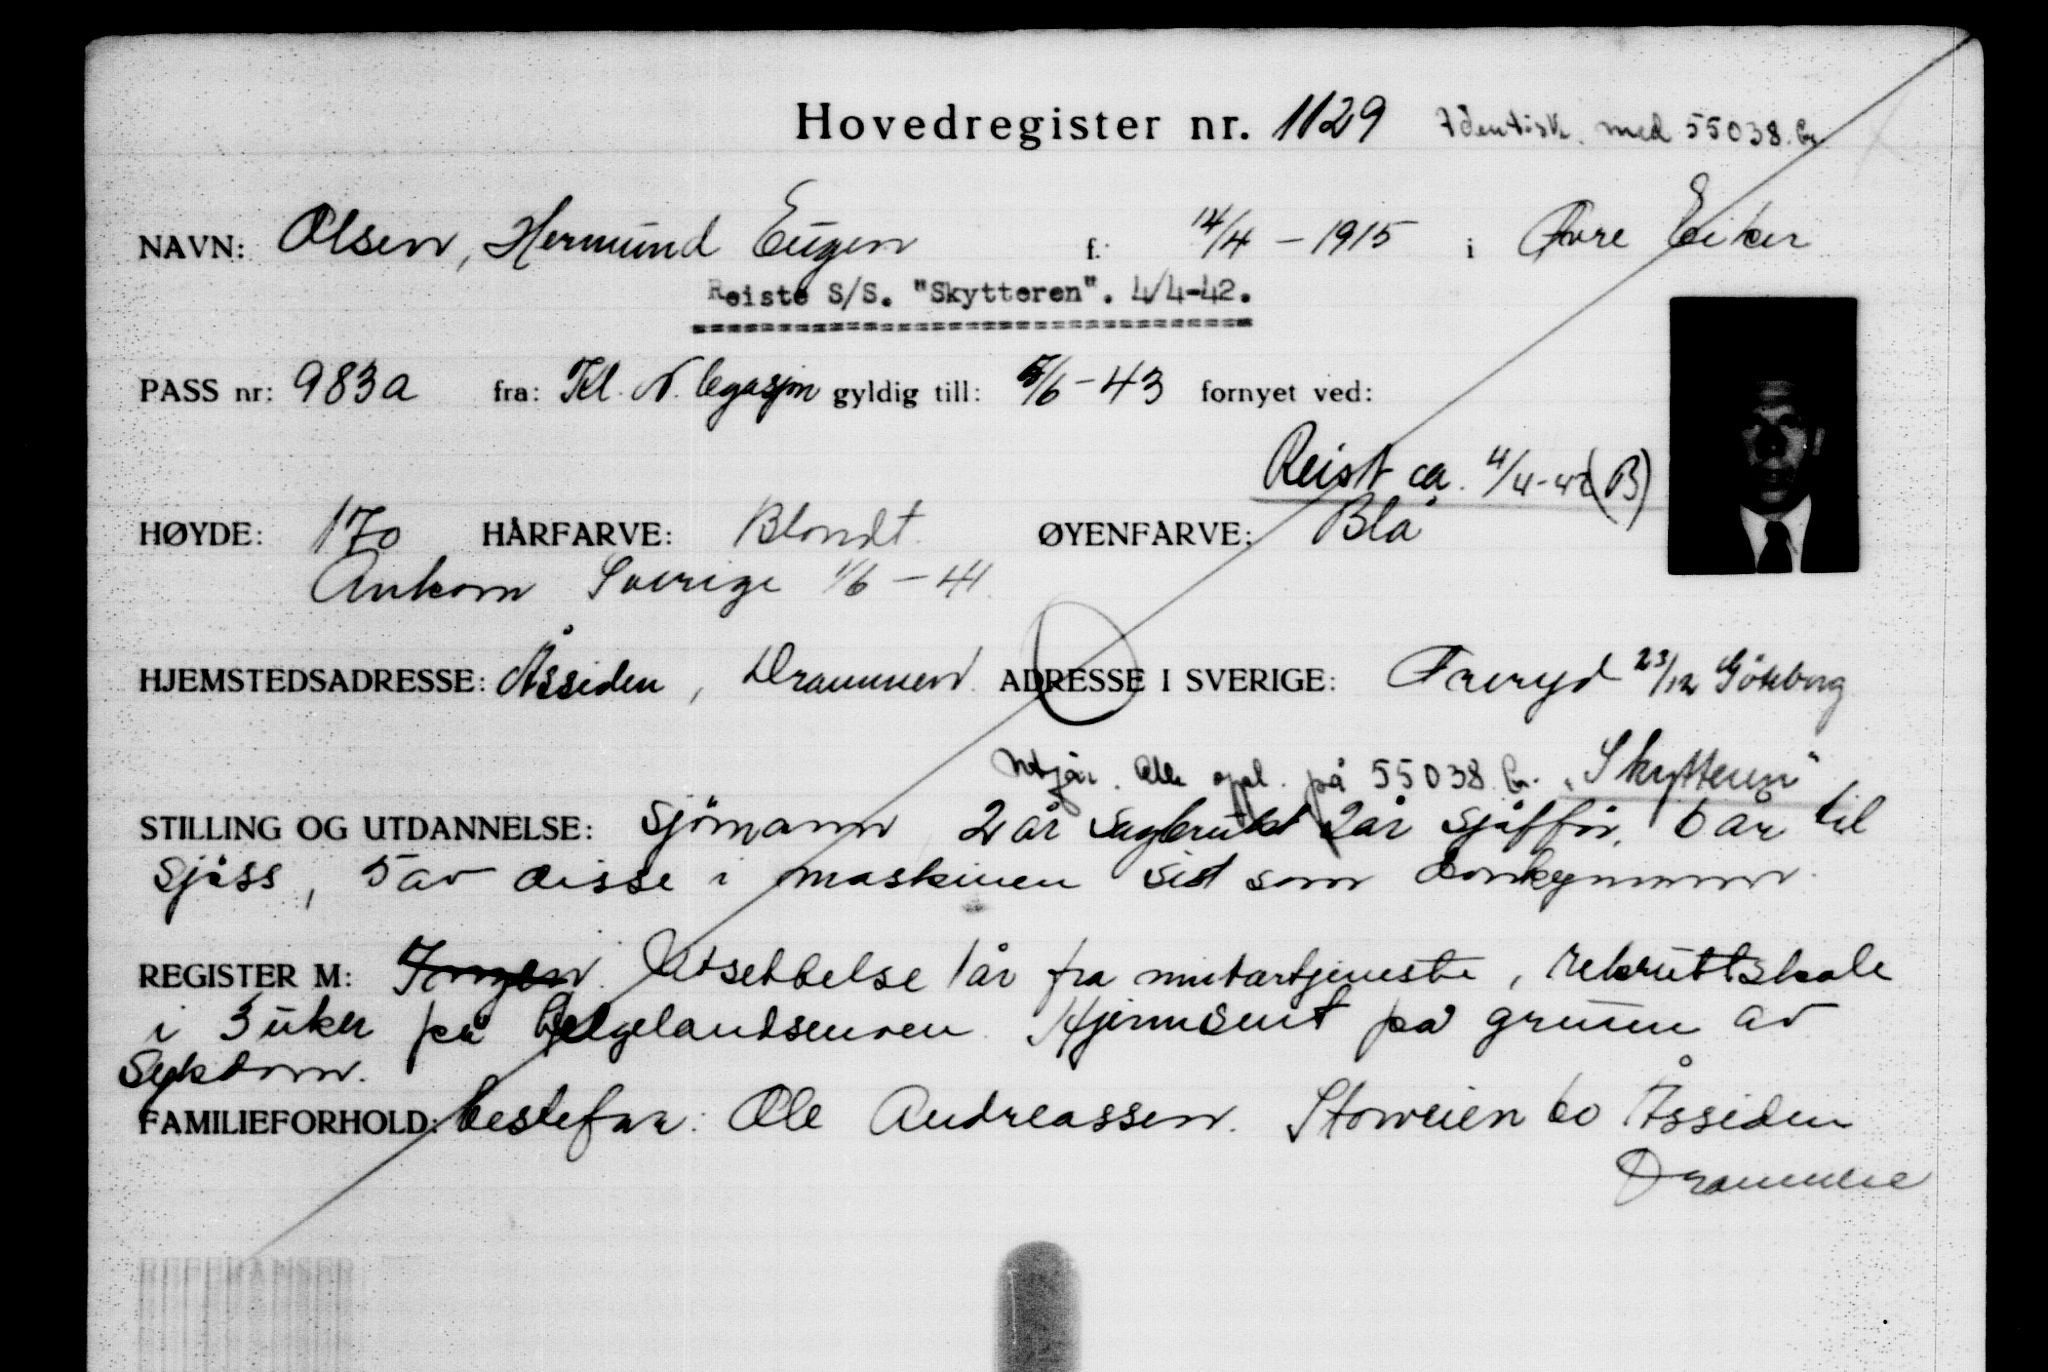 Hovedregister nr. 1129 Identisk. med 55038. Gr.
NAVN: Olsen, Hermund Eugen f: 14/4 - 1915 i Øvre Eiker
Reiste S/S. "Skytteren". 4/4-42.
PASS nr: 983a fra: Kl. N. legasjon gyldig till: 5/6-43 fornyet ved:
Reist ca. 4/4-42 (B)
HØYDE: 170 HÅRFARVE: Blondt. ØYENFARVE: Blå
Ankom Sverige 1/6-41.
HJEMSTEDSADRESSE: Åssiden, Drammen ADRESSE I SVERIGE: Freryd 23/12 Göteborg
Utgår. Alle oppl. på 55038. Gr. "Skytteren"
STILLING OG UTDANNELSE: Sjömann, 2 år sagbruk 2 år sjåffør, 6 år til
sjøss, 5 av disse i maskinen sist som donkeymann.
REGISTER M: Ingen. Utsettelse 1 år fra militærtjeneste, rekruttskole
i 3 uker på Helgelandsmoen. Hjemsent på grunn av
sykdom.
FAMILIEFORHOLD: bestefar: Ole Andreassen. Storveien 60 Åssiden
Drammen